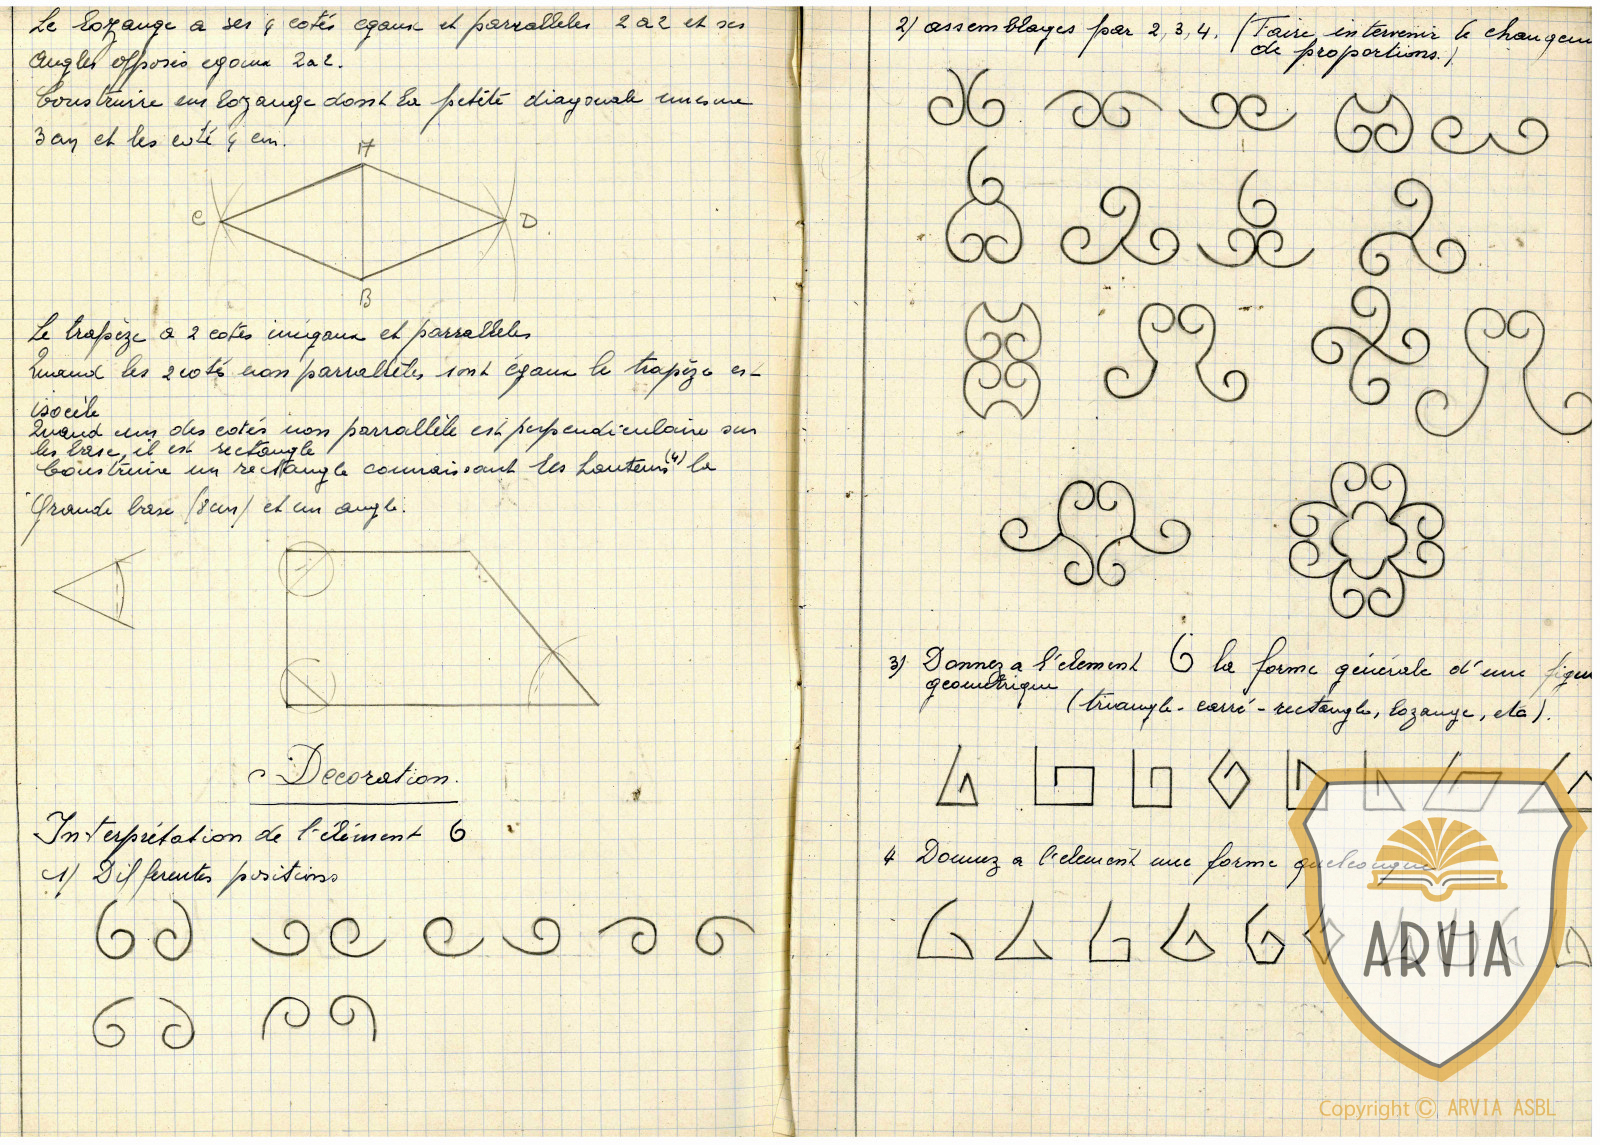 Le lozange a ses 4 cotés egaux et parralleles 2 a 2 et ses
angles opposés egaux 2 a 2.
Construire un lozange dont la petite diagonale mesure
3 cm et les coté 4 cm.
A
C
D
B
Le trapèze a 2 cotés inégaux et parralleles
Quand les 2 coté non parrallèles sont égaux le trapèze est
isocèle
Quand un des cotés non parrallèle est perpendiculaire sur
les base, il est rectangle
Construire un rectangle connaissant les hauteurs (4) la
Grande base (8cm) et un angle.
Decoration.
Interprétation de l'élément 6
1) Differentes positions
2) assemblages par 2, 3, 4. (Faire intervenir le changem
de proportions.)
3) Donnez a l'element 6 la forme générale d'une figu
geometrique
(triangle - carré - rectangle, lozange, etc).
4 Donnez a l'element une forme quelconque
ARVIA
Copyright © ARVIA ASBL